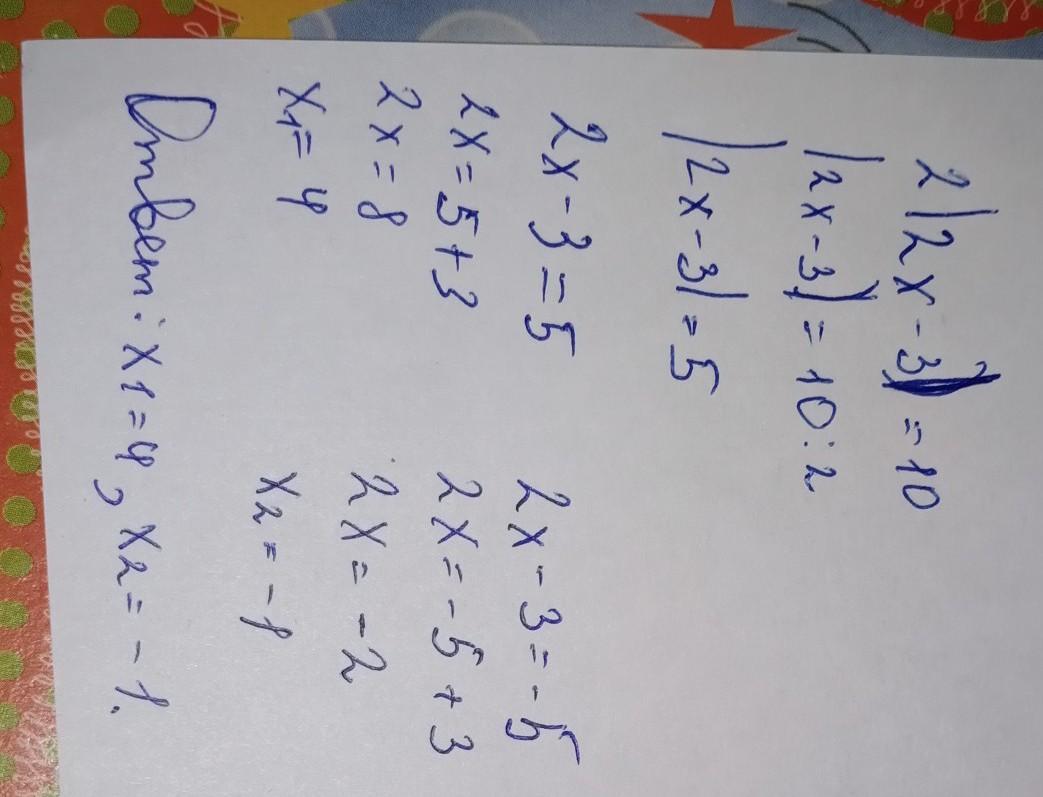 2|2x-3|=10
|2x-3|=10:2
|2x-3|=5
2x-3=5
2x=5+3
2x=8
x1=4
2x-3=-5
2x=-5+3
2x=-2
x2=-1
Ответ: x1=4, x2=-1.